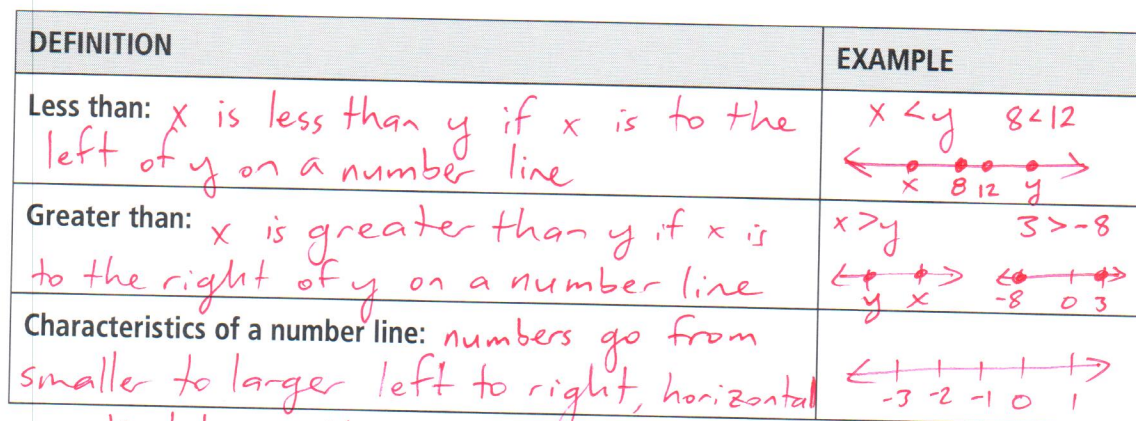 DEFINITION
EXAMPLE
Less than: x is less than y if x is to the
left of y on a number line
x < y 8 < 12
x 8 12 y
Greater than: x is greater than y if x is
to the right of y on a number line
x > y 3 > -8
y x -8 0 3
Characteristics of a number line: numbers go from
smaller to larger left to right, horizontal
-3 -2 -1 0 1